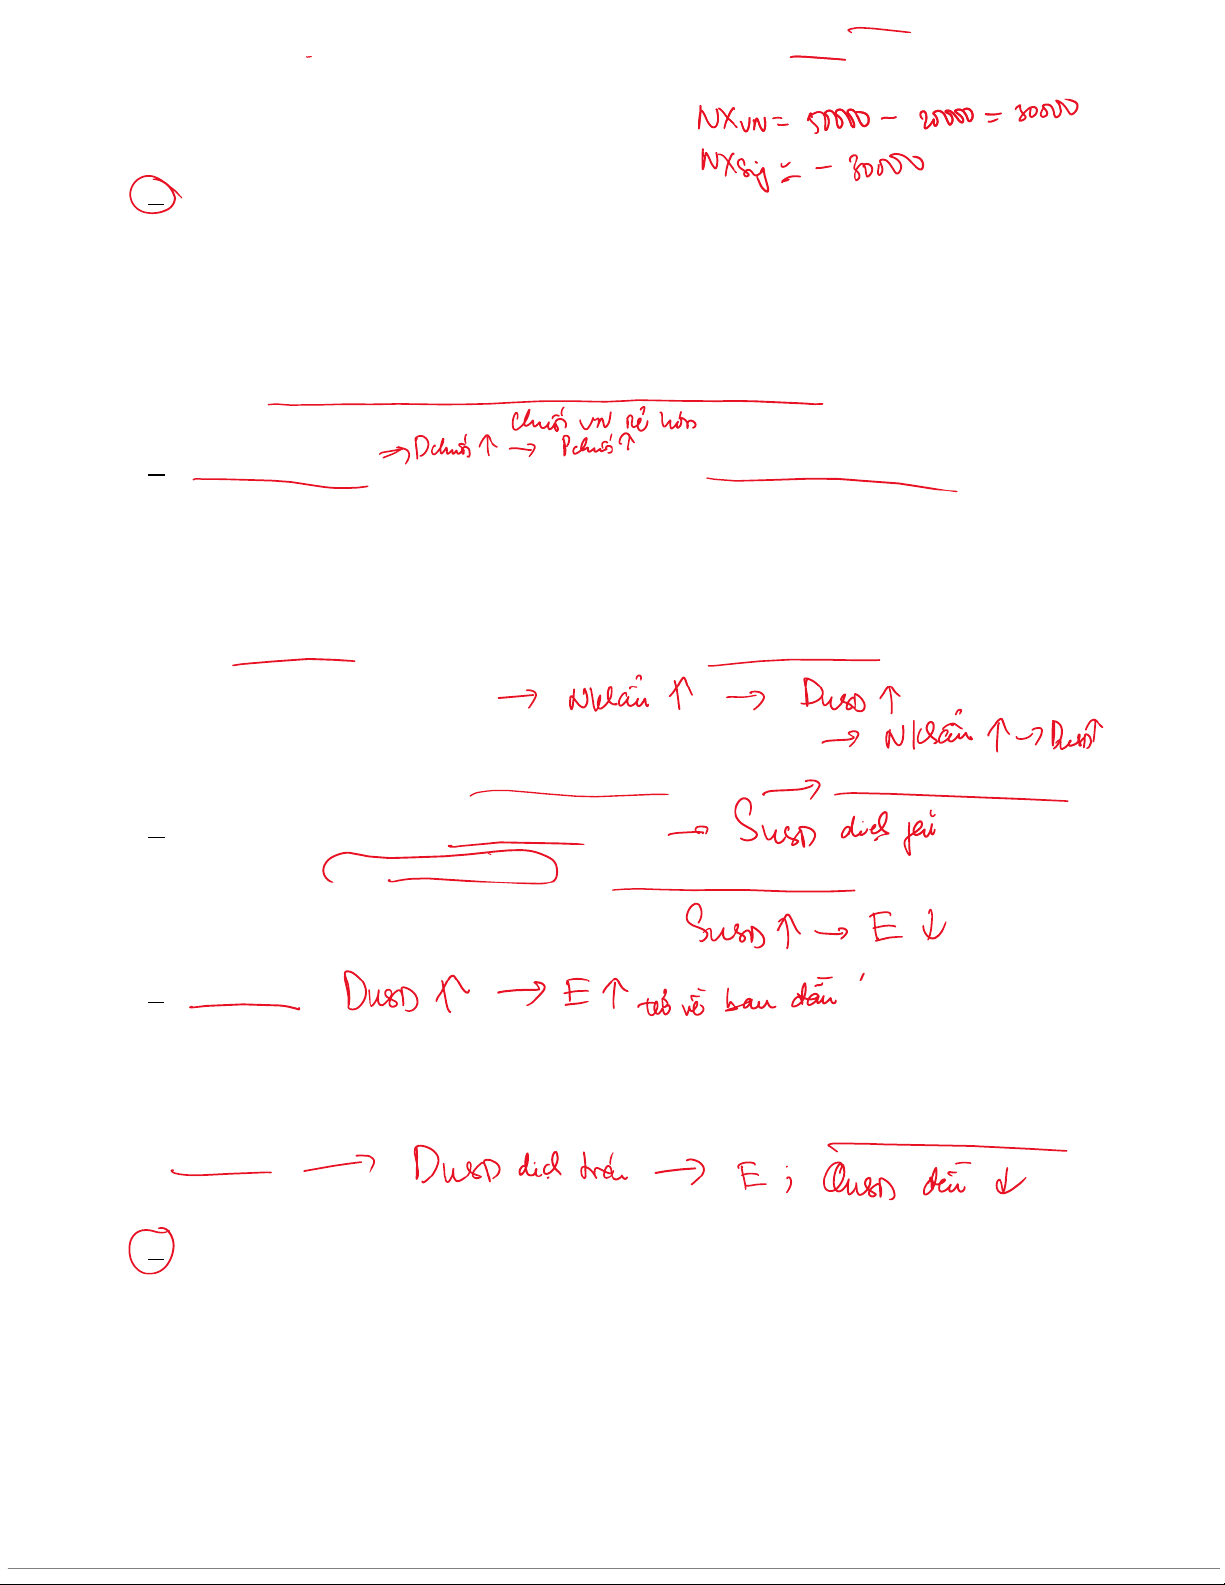 NXVN = 50000 - 20000 = 30000
NXSig = - 30000
chuối VN rẻ hơn
⇒ Dchuối ↑ → Pchuối ↑
→ Nkhẩu ↑ → DUSD ↑
→ Nkhẩu ↑ → DUSD↑
→ SUSD dịch phải
SUSD ↑ → E ↓
DUSD ↑ → E ↑ trở về ban đầu
→ DUSD dịch trái → E ; QUSD đều ↓